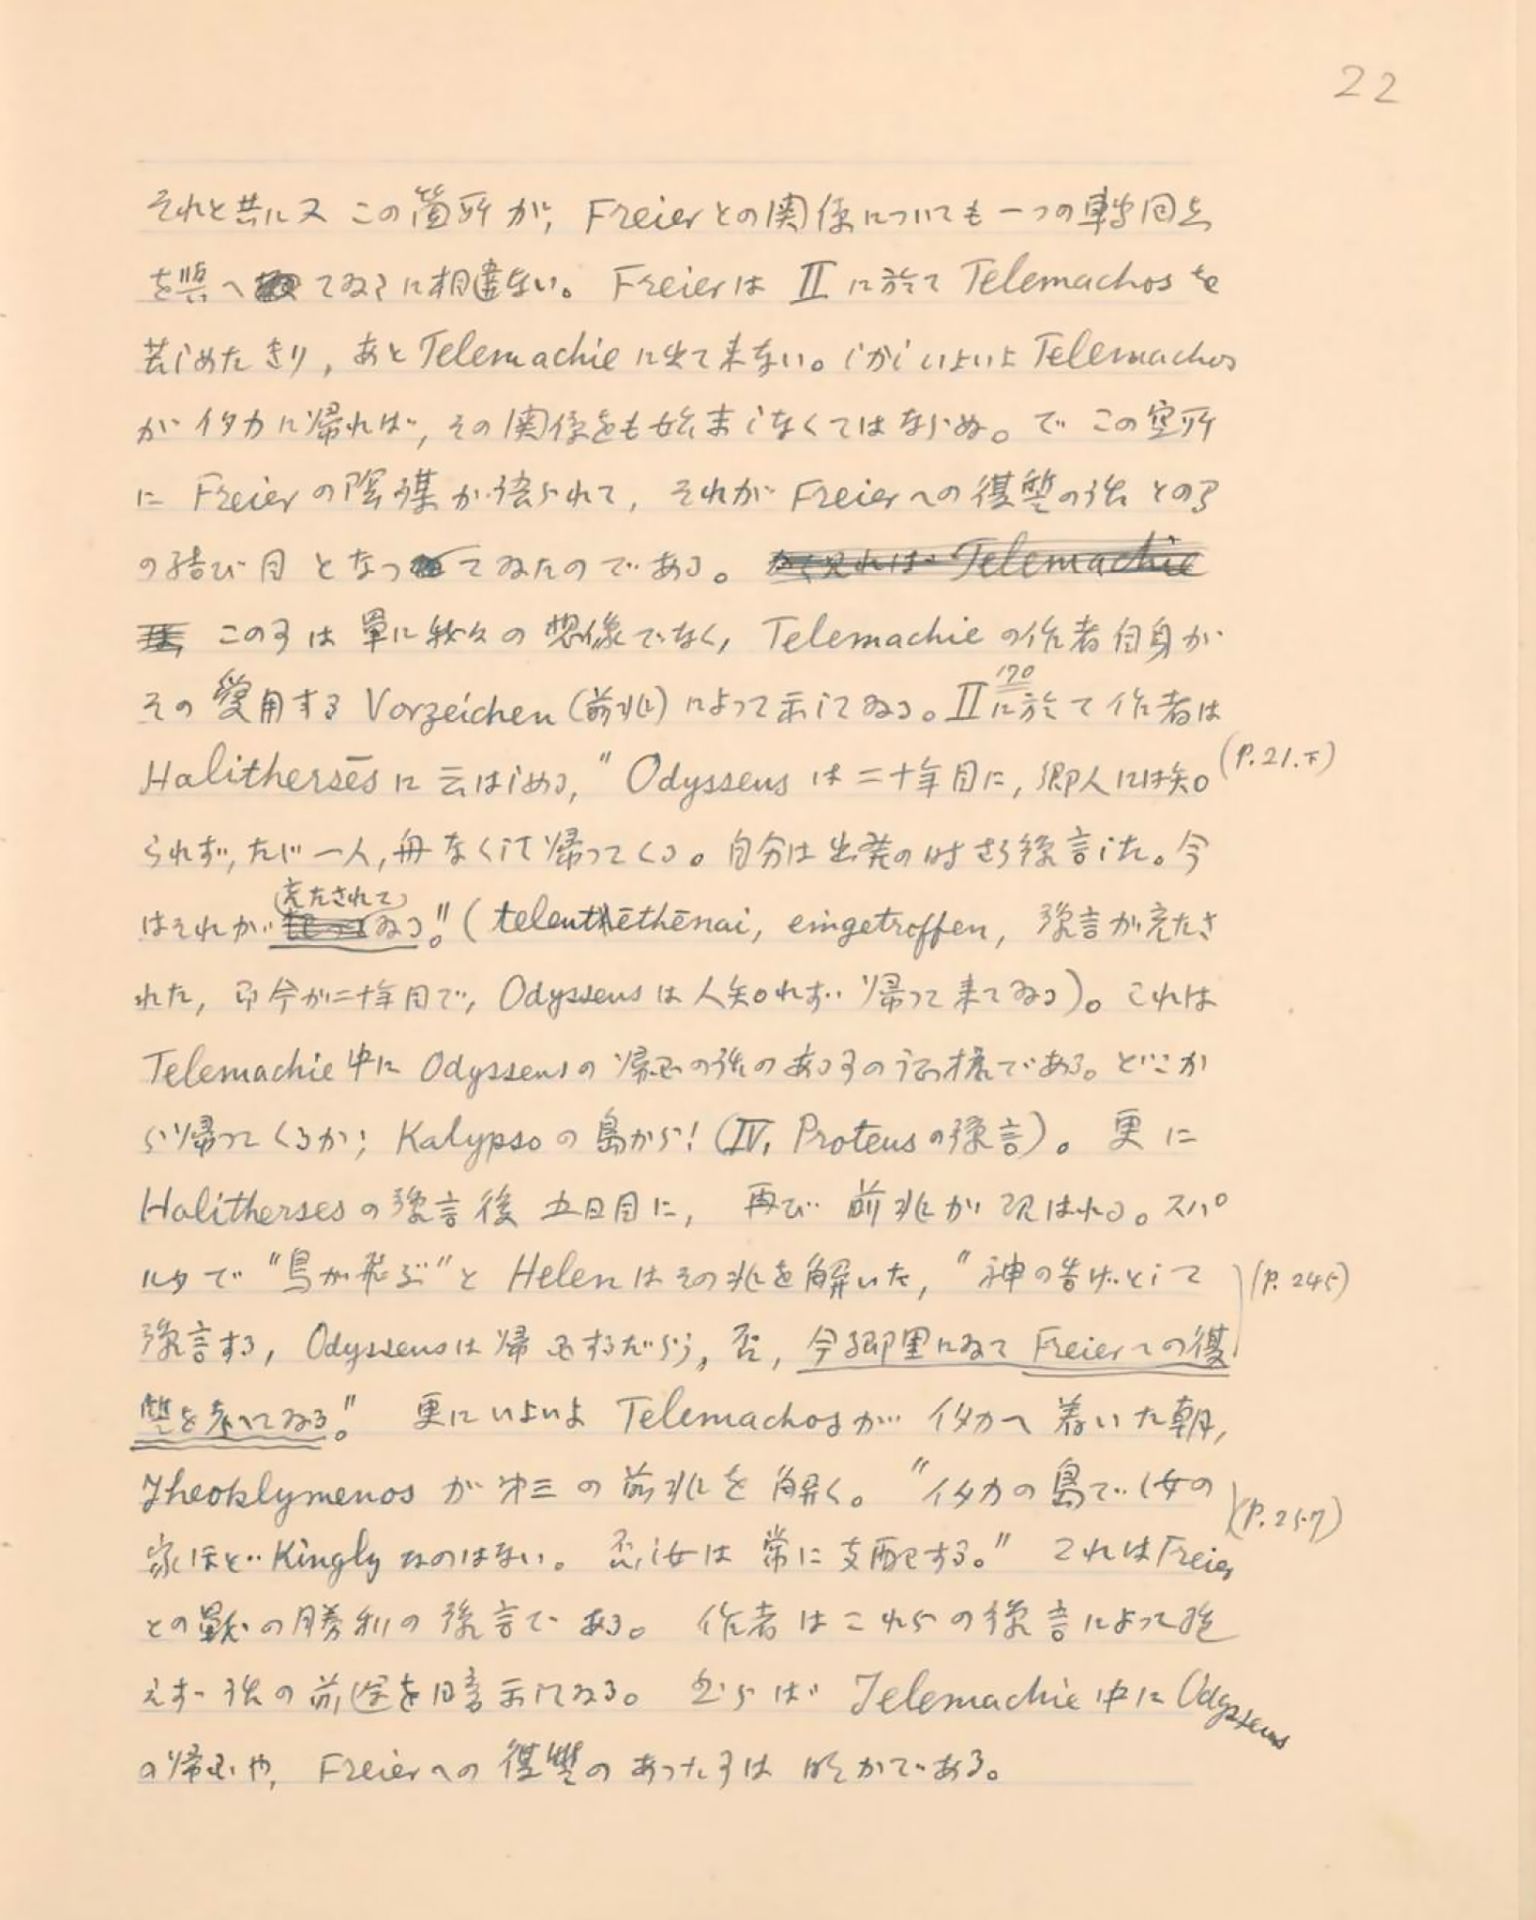 22
それと共に又 この箇所が, Freierとの関係についても一つの轉回点
を與へてゐるに相違ない。 Freierは II に於て Telemachos を
苦しめたきり, あと Telemachie に出て来ない。しかしいよいよ Telemachos
が イタカに帰れば, その関係をも始まらなくてはならぬ。で この空所
に Freier の陰謀が語られて, それが Freier への復讐の話 との了
の結び目 となってゐたのである。
この了は 單に我々の 想像でなく, Telemachie の作者自身が
その 愛用する Vorzeichen (前兆) によって示してゐる。II 170 に於て 作者は
Halithersēs に 云はしめる, "Odysseus は二十年目に, 郷人には知 (P.21.下)
られず, たゞ一人, 舟なくして帰ってくる。自分は出発の時さう豫言した。今
はそれが (充たされて) ゐる!" (teleuthēthēnai, eingetroffen, 豫言が充たさ
れた, 即今が二十年目で, Odysseus は 人知れず 帰って来てゐる)。これは
Telemachie 中に Odysseus の 帰国の話のある了の証據である。どこか
ら帰ってくるか; Kalypso の 島から! (IV, Proteus の豫言)。 更に
Halitherses の豫言後 五日目に, 再び 前兆が現はれる。スパ
ルタで "鳥が飛ぶ" と Helen はその兆を解いた, "神の告げとして (P. 245)
豫言する, Odysseus は 帰国するだらう, 否, 今郷里にゐて Freier への復
讐を考へてゐる。" 更にいよいよ Telemachos が イタカへ 着いた朝,
Theoklymenos が 第三 の 前兆を 解く。 "イタカの 島で 汝の (P. 257)
家ほど Kingly なのはない。 否, 汝は 常に支配する。" これは Freier
との戰の勝利の 豫言で ある。 作者 は これらの豫言によって絶
えず 話の 前途を暗示してゐる。 さらば Telemachie 中に Odysseus
の帰国や, Freier への 復讐の あった了は 明かである。